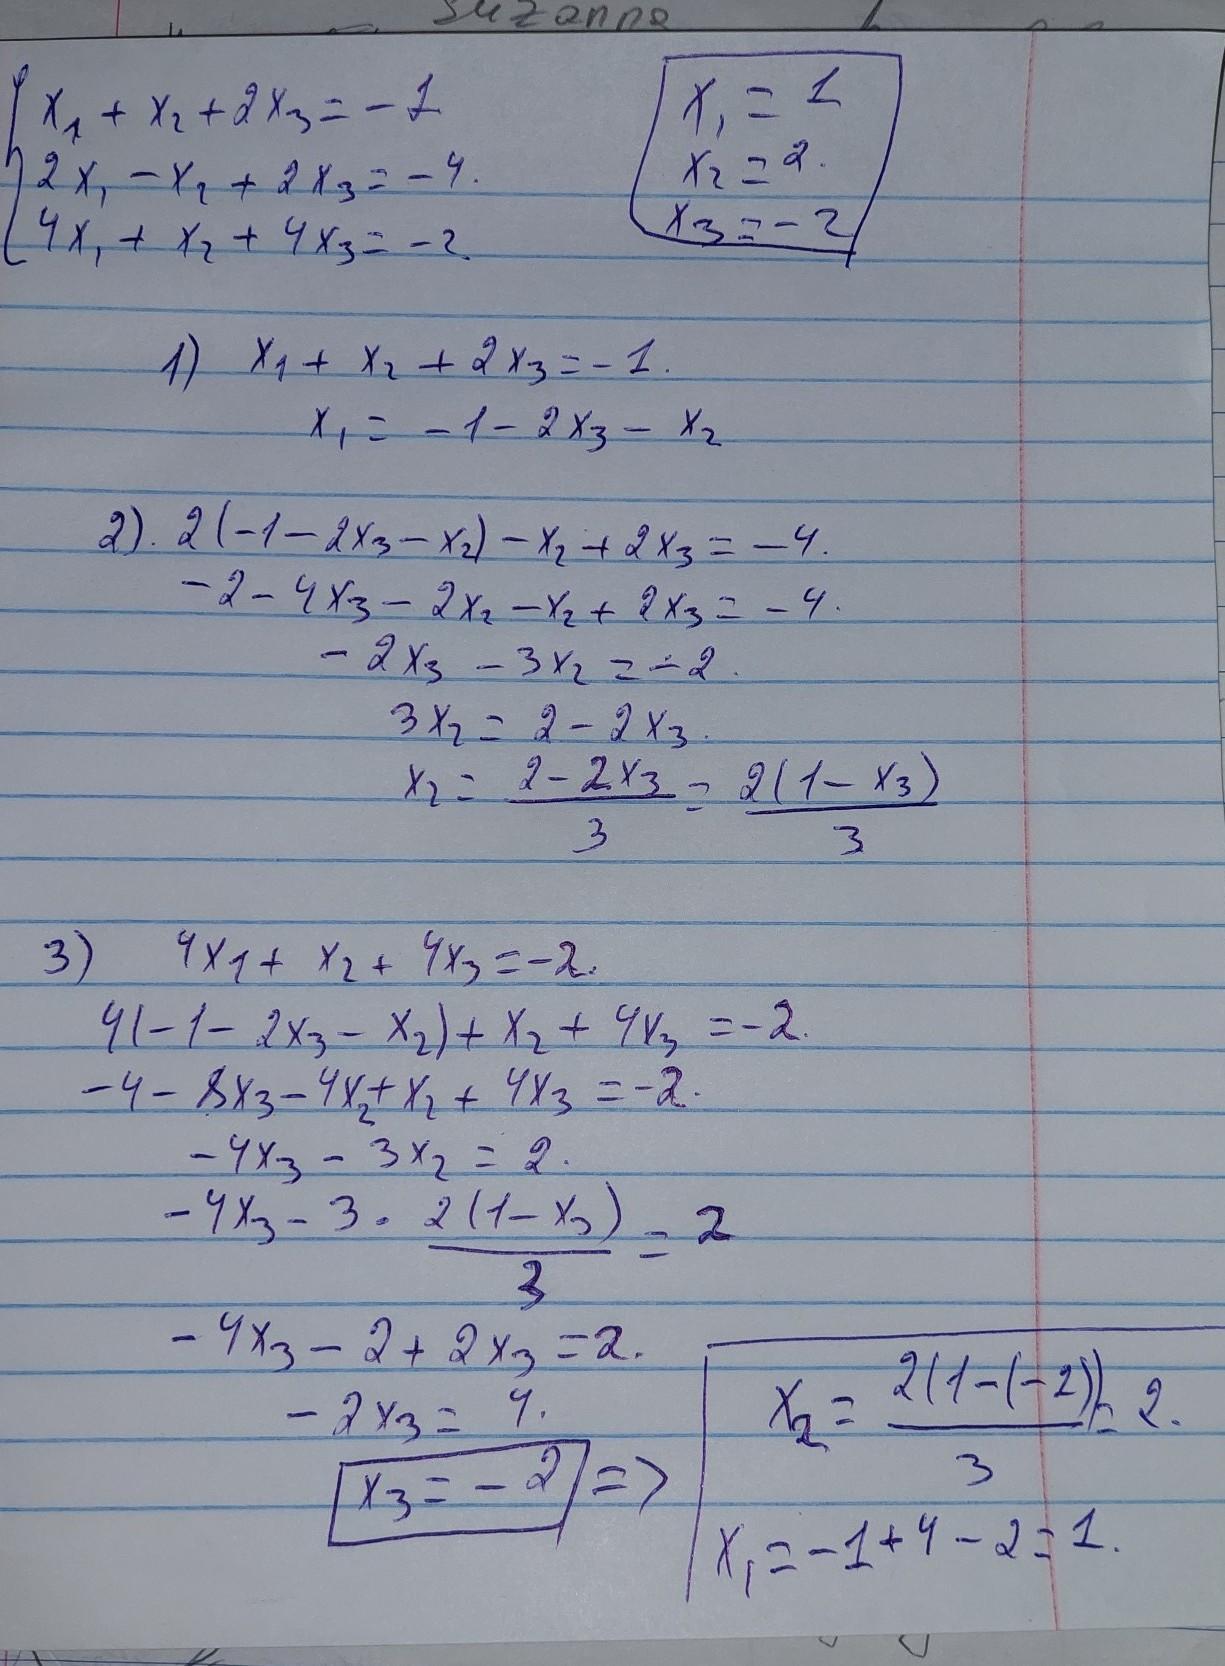 Suzanna
x₁ + x₂ + 2x₃ = -1
2x₁ - x₂ + 2x₃ = -4.
4x₁ + x₂ + 4x₃ = -2
x₁ = 1
x₂ = 2.
x₃ = -2
1) x₁ + x₂ + 2x₃ = -1.
x₁ = -1 - 2x₃ - x₂
2). 2(-1 - 2x₃ - x₂) - x₂ + 2x₃ = -4.
-2 - 4x₃ - 2x₂ - x₂ + 2x₃ = -4.
-2x₃ - 3x₂ = -2.
3x₂ = 2 - 2x₃.
x₂ = (2 - 2x₃)/3 = 2(1 - x₃)/3
3) 4x₁ + x₂ + 4x₃ = -2.
4(-1 - 2x₃ - x₂) + x₂ + 4x₃ = -2.
-4 - 8x₃ - 4x₂ + x₂ + 4x₃ = -2.
-4x₃ - 3x₂ = 2.
-4x₃ - 3 · 2(1 - x₃)/3 = 2
-4x₃ - 2 + 2x₃ = 2.
-2x₃ = 4.
x₃ = -2 =>
x₂ = 2(1-(-2))/3 = 2.
x₁ = -1 + 4 - 2 = 1.